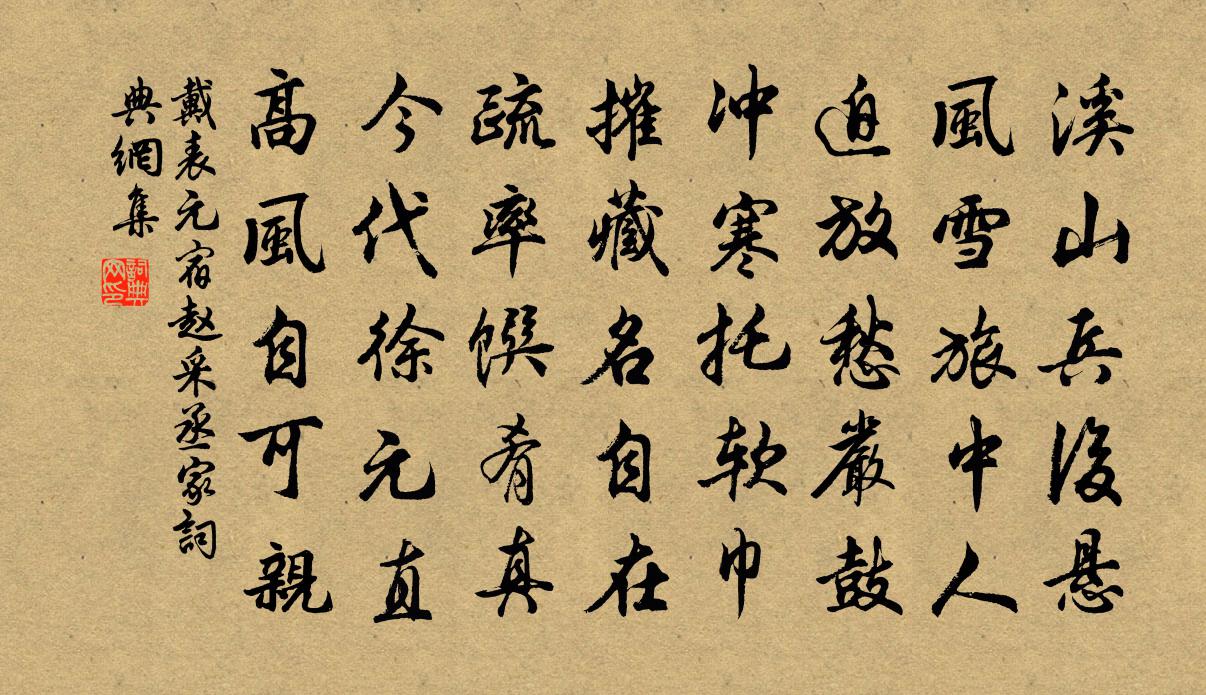 溪山兵後悬
風雪旅中人
迫放愁嚴鼓
冲寒托软巾
摧藏名自在
疏率馔肴真
今代徐元直
高風自可親
戴表元宿赵采丞家詞
典網集
詞典
网印